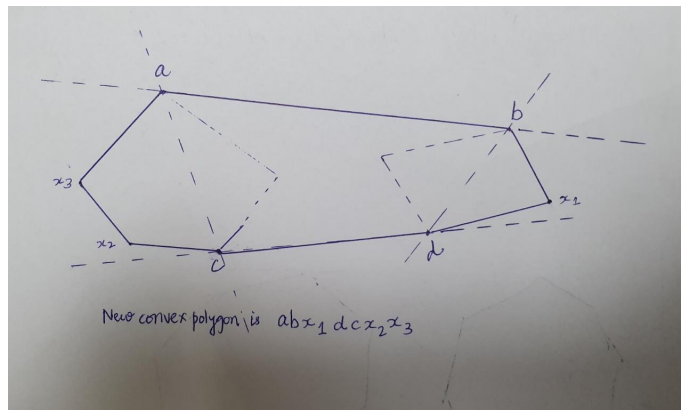 a
b
x3
x1
x2
c
d
New convex polygon is abx1dcx2x3